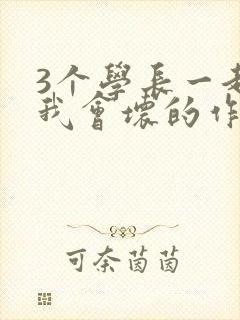 3个學長一起
我會壞的作
可奈茵茵